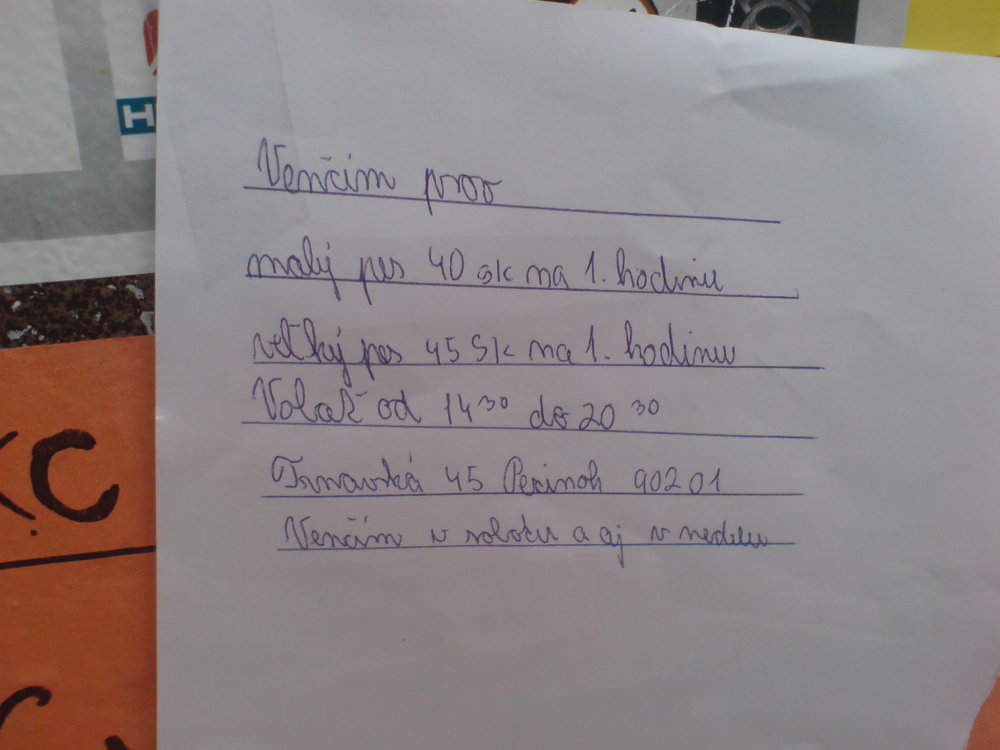 H
KC
Venčím psov
malý pes 40 sk na 1. hodinu
veľký pes 45 Sk na 1. hodinu
Volať od 14 30 do 20 30
Trnavská 45 Pezinok 902 01
Venčím v sobotu a aj v nedelu